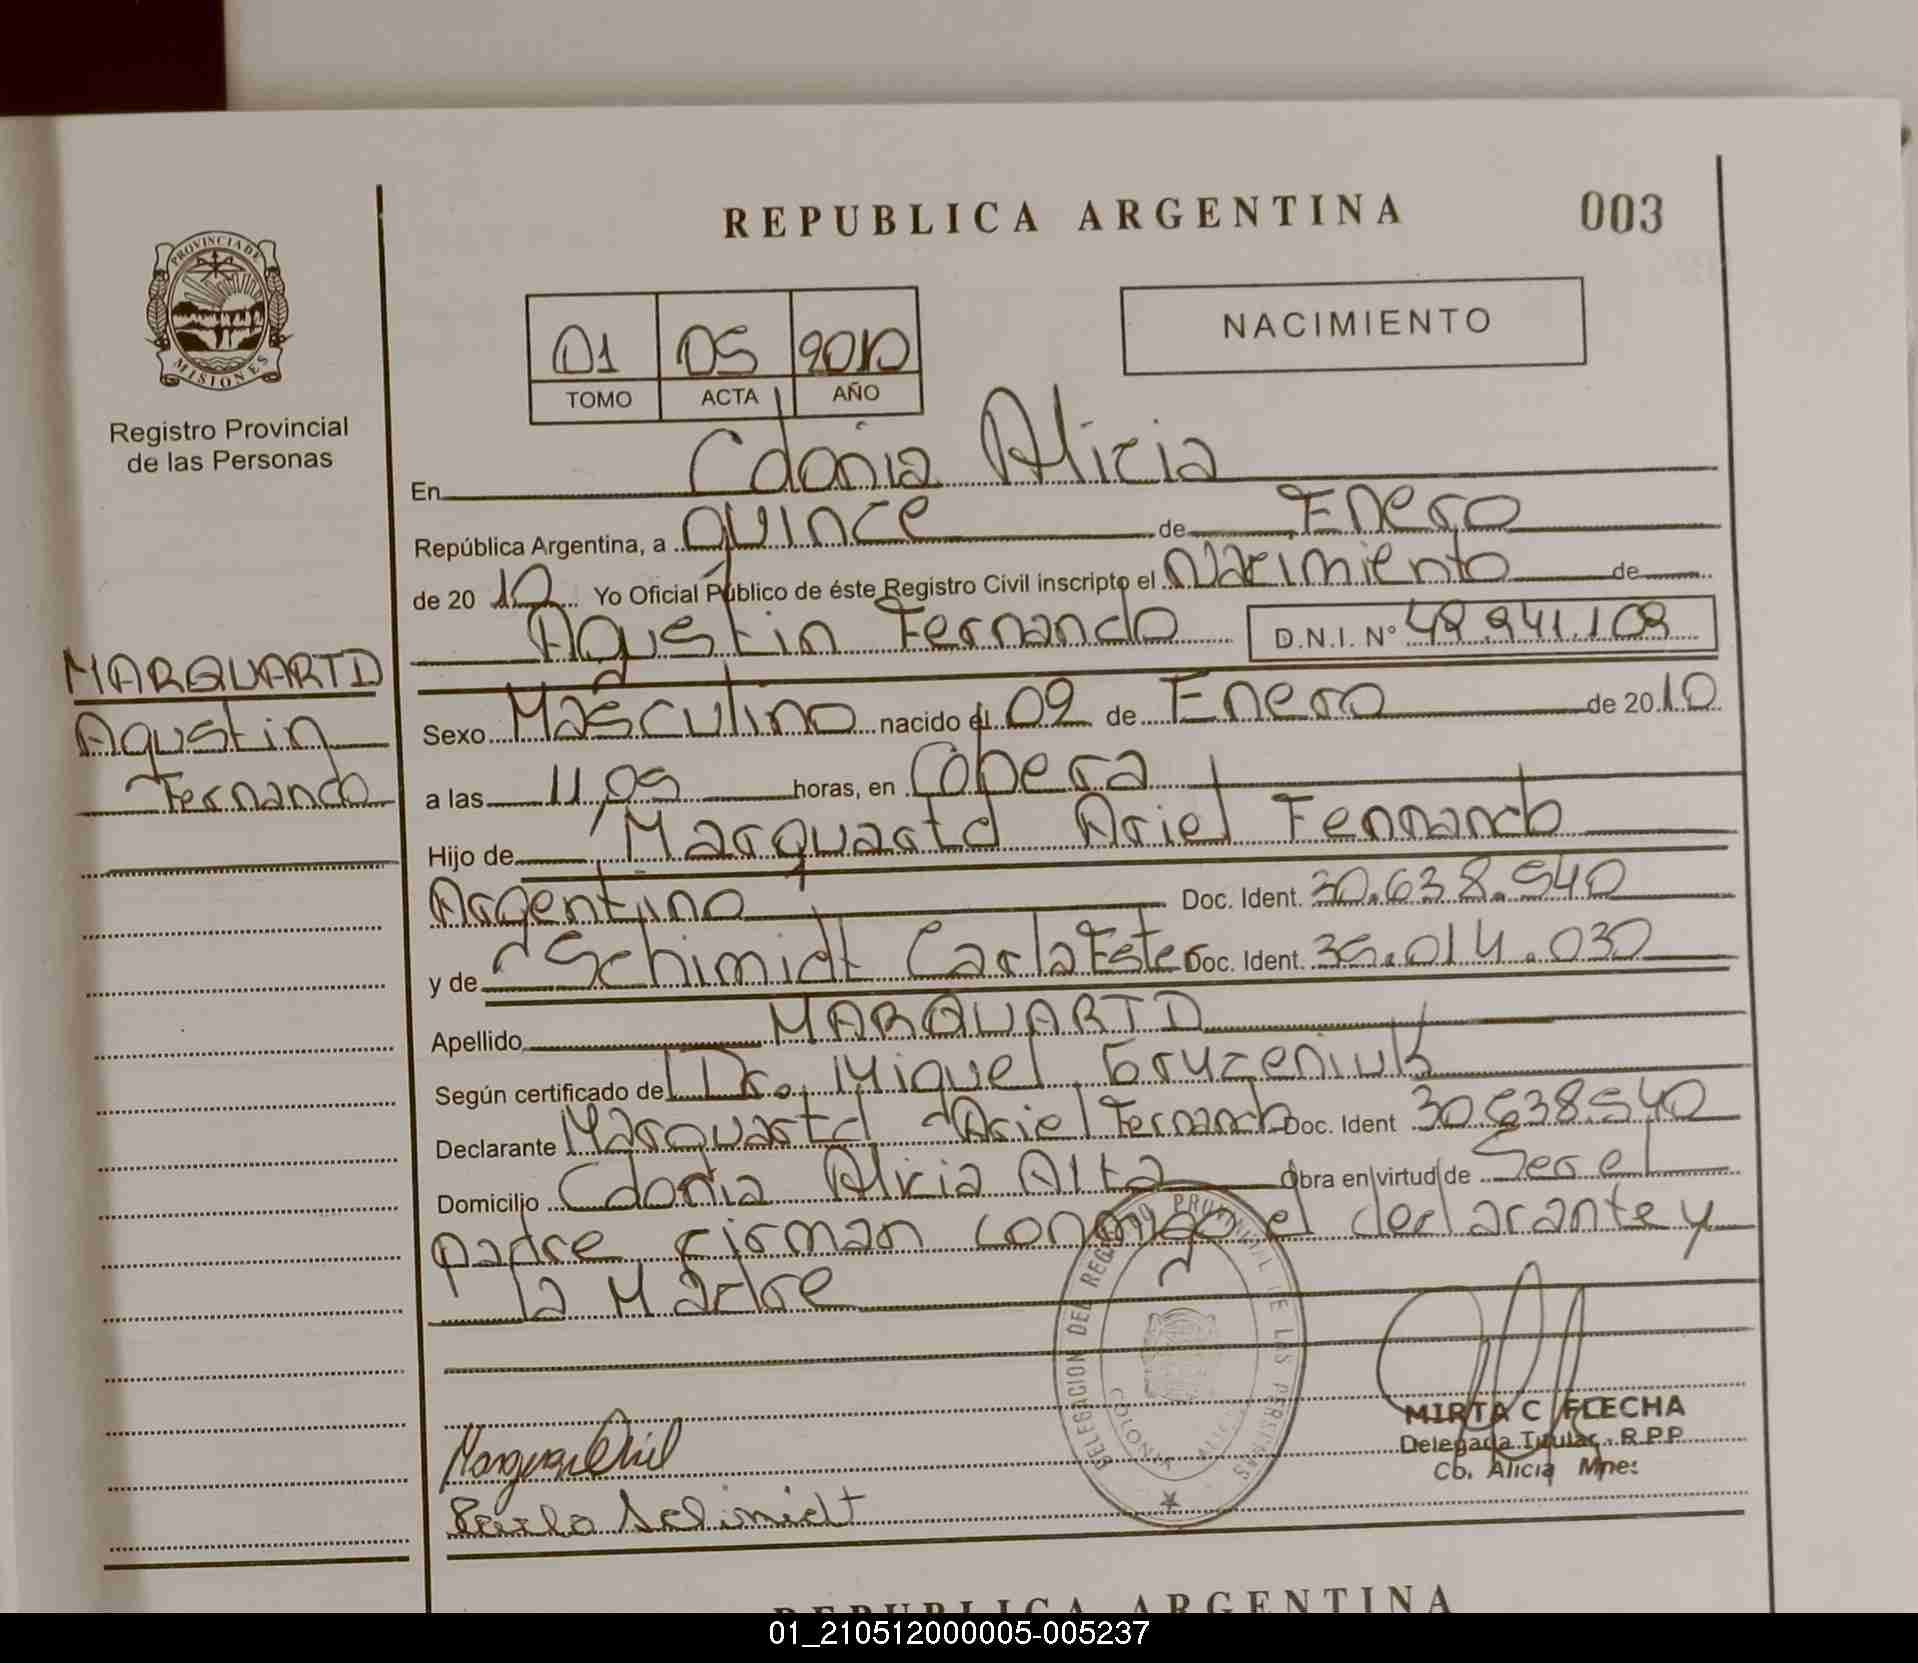 REPUBLICA ARGENTINA
003
PROVINCIA DE
MISIONES
Registro Provincial
de las Personas
01 05 2010
TOMO ACTA AÑO
NACIMIENTO
En Colonia Alicia
República Argentina, a quince de Enero
de 2010 Yo Oficial Público de éste Registro Civil inscripto el Nacimiento de
Agustin Fernando D.N.I. Nº 49.941.109
MARQUARTD
Agustin
Fernando
Sexo Masculino nacido el 09 de Enero de 2010
a las 11,05 horas, en Obera
Hijo de Marquartd Ariel Fernando
Argentino Doc. Ident. 30.638.540
y de Schimidt Carla Ester Doc. Ident. 35.014.030
Apellido MARQUARTD
Según certificado del Dr. Miguel Gruzeniuk
Declarante Marquartd Ariel Fernando Doc. Ident 30.638.540
Domicilio Colonia Alicia Alta Obra en virtud de Ser el
padre firman conmigo el declarante y
la Madre
DELEGACION DEL REGISTRO PROVINCIAL DE LAS PERSONAS
COLONIA ALICIA
MIRTA C FLECHA
Delegada Titular R.P.P.
Co. Alicia Mnes
Carla Schimidt
REPUBLICA ARGENTINA
01_210512000005-005237